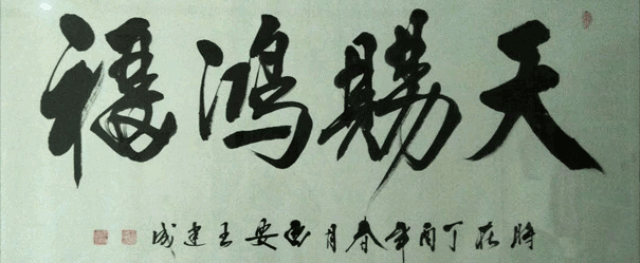 天賜鴻福
時在丁酉年春月西安王建成